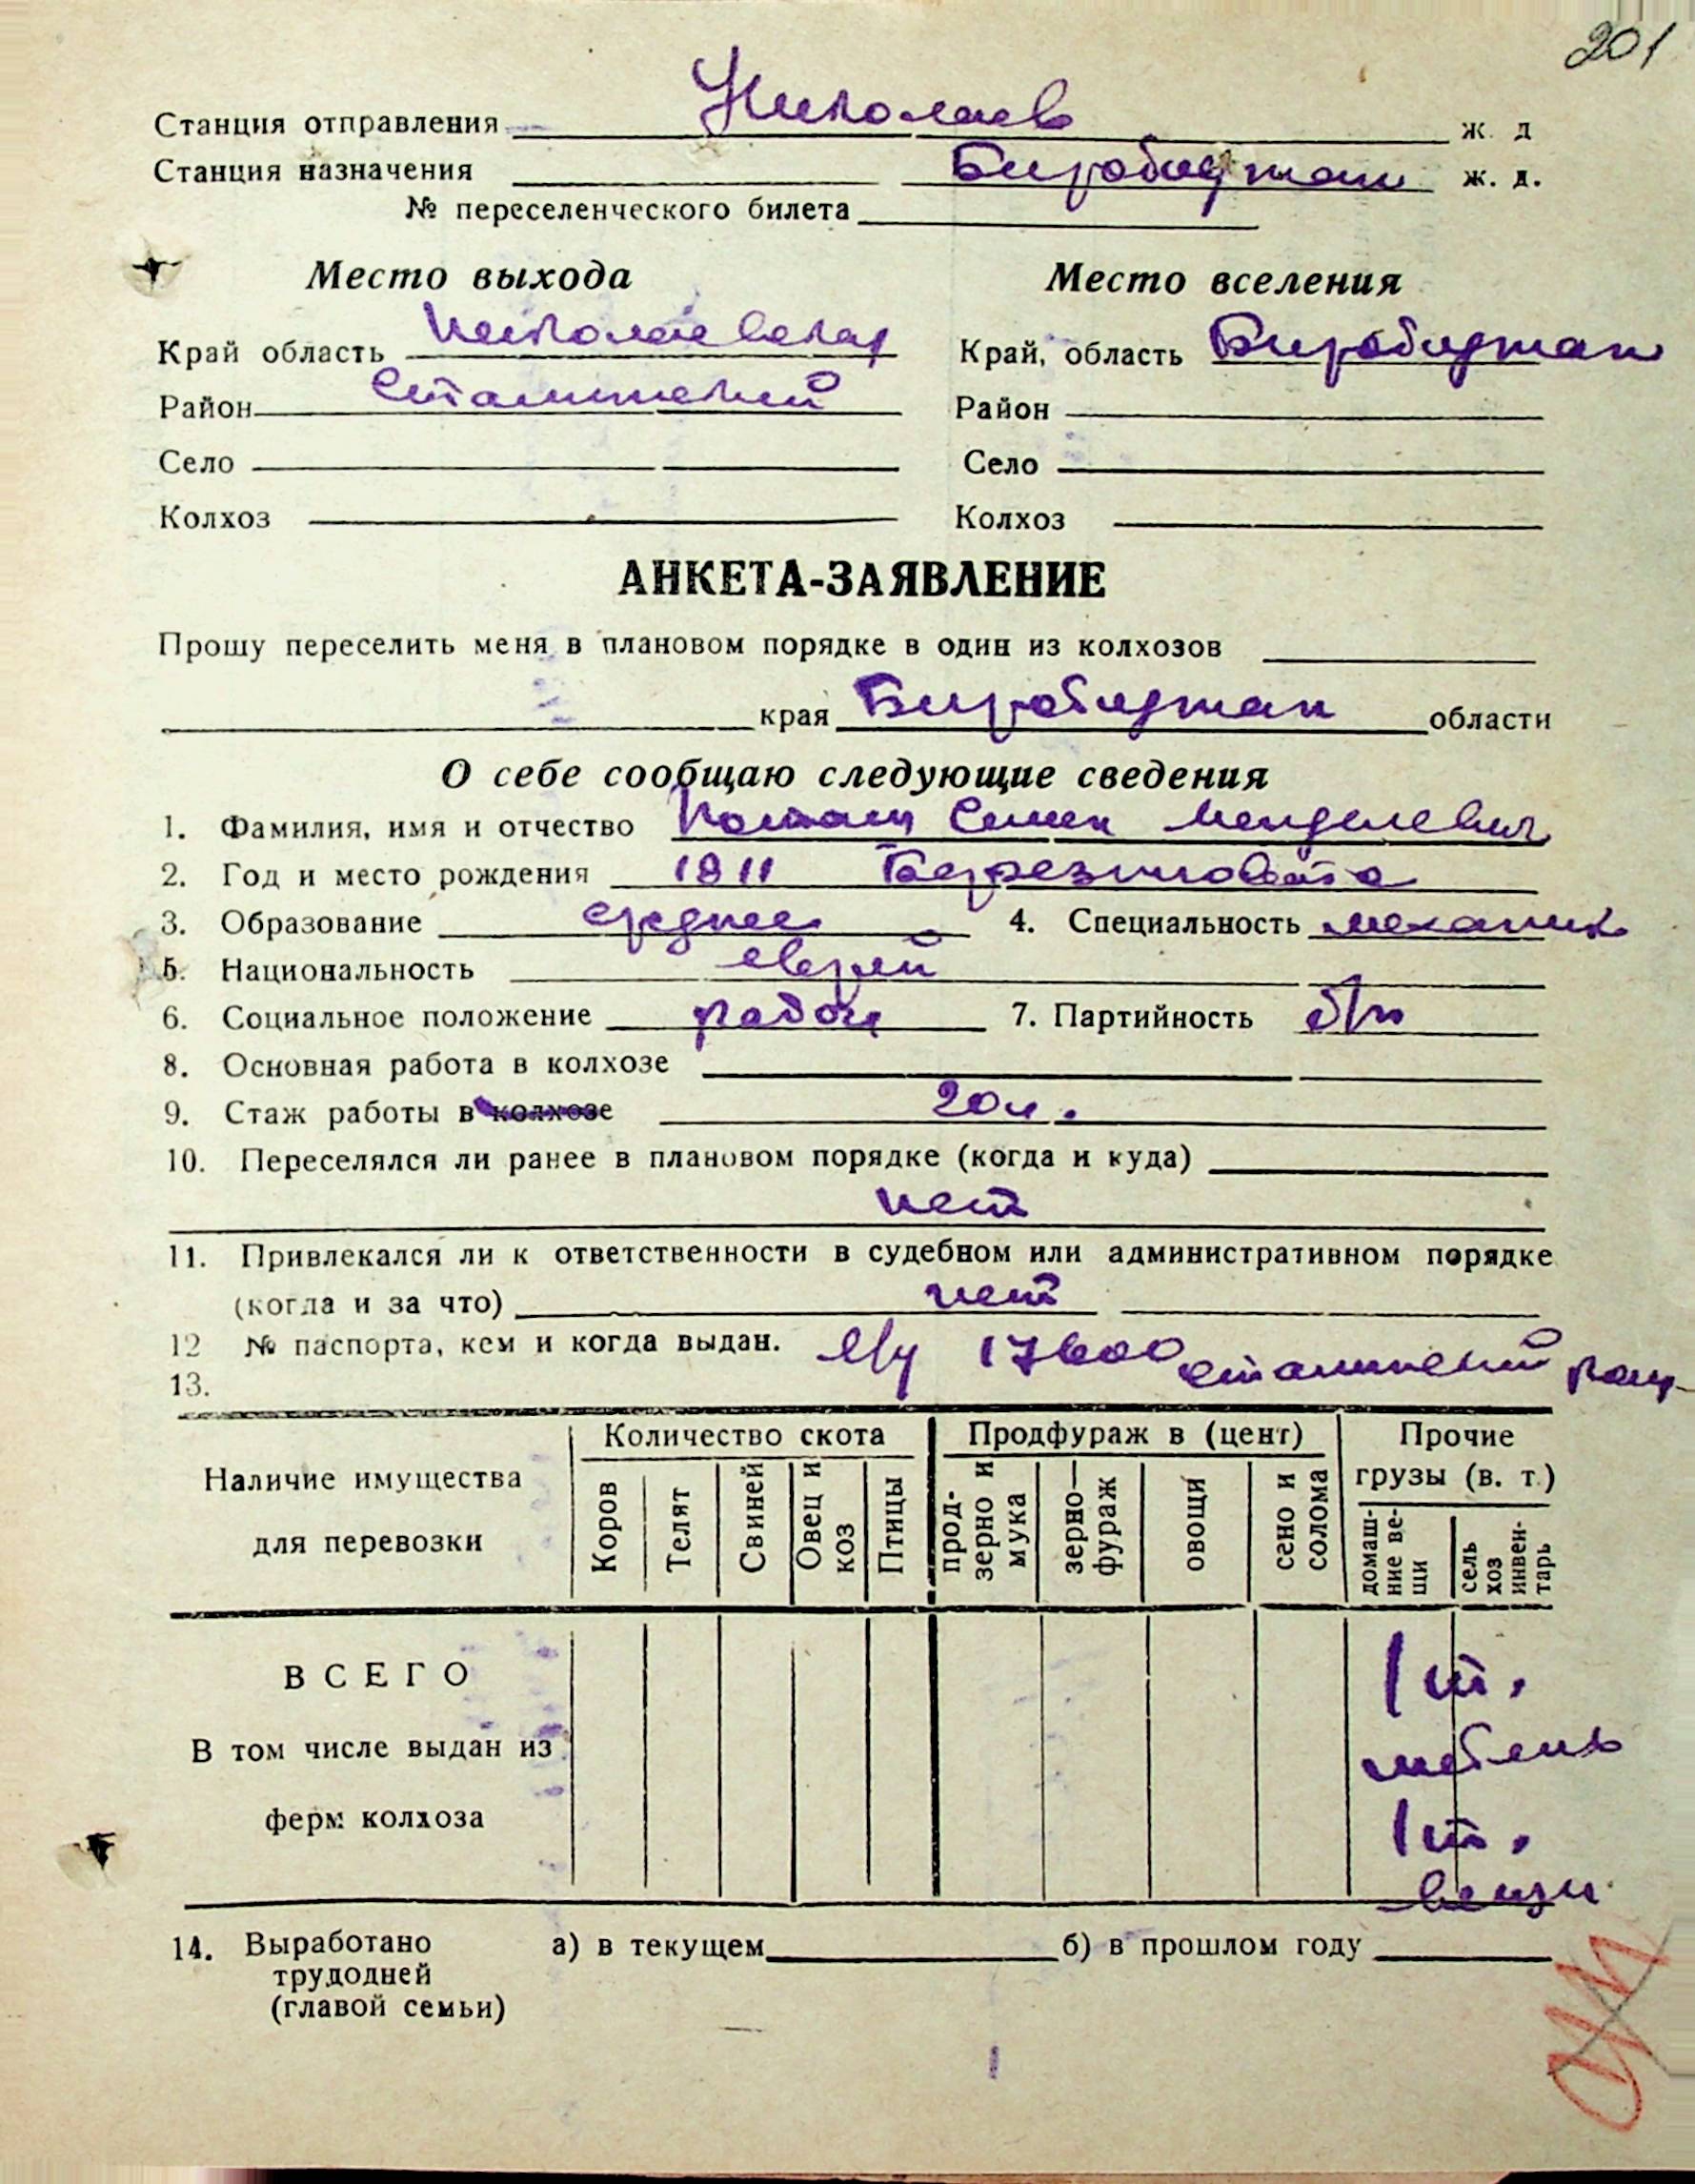 201
Станция отправления Николаев ж. д
Станция назначения Биробиджан ж. д.
№ переселенческого билета
Место выхода Место вселения
Край область Николаевская Край, область Биробиджан
Район Сталинский Район
Село Село
Колхоз Колхоз
АНКЕТА-ЗАЯВЛЕНИЕ
Прошу переселить меня в плановом порядке в один из колхозов
края Биробиджан области
О себе сообщаю следующие сведения
1. Фамилия, имя и отчество Семен Менделевич
2. Год и место рождения 1911 Березниговато
3. Образование среднее 4. Специальность механик
5. Национальность еврей
6. Социальное положение рабоч 7. Партийность б/п
8. Основная работа в колхозе
9. Стаж работы в колхозе 20 л.
10. Переселялся ли ранее в плановом порядке (когда и куда)
нет
11. Привлекался ли к ответственности в судебном или административном порядке
(когда и за что) нет
12 № паспорта, кем и когда выдан. Сталинский
13.
Наличие имущества для перевозки Количество скота Продфураж в (цент) Прочие грузы (в. т.)
Коров Телят Свиней Овец и коз Птицы прод-зерно и мука зерно—фураж овощи сено и солома домаш-ние ве-щи сель хоз инвен-тарь
ВСЕГО 1 т.
В том числе выдан из мебель
ферм колхоза 1 т.
вещи
14. Выработано а) в текущем б) в прошлом году
трудодней
(главой семьи)